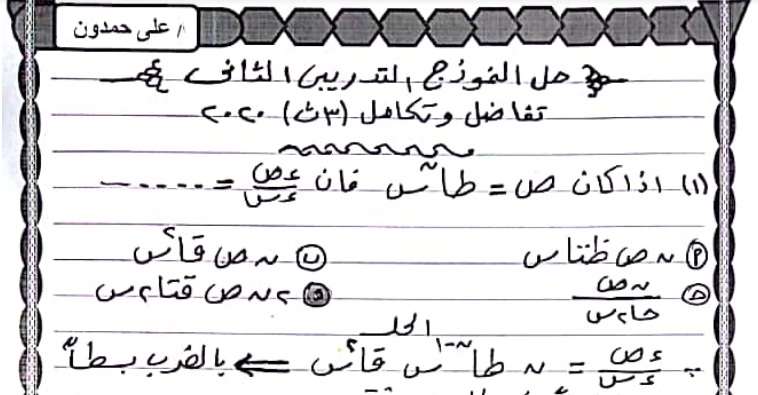 / على حمدون
حل النموذج التدريبى الثانى
تفاضل وتكامل (٣ث) ٢٠٢٠
(١) اذا كان ص = طاⁿس فان ءص/ءس = ....
أ ن ص ظتاس ب ن ص قا٢س
ج ن ص/حا٢س د ٢ ن ص قتا٢س
الحل
ءص/ءس = ن طاⁿ⁻¹س قا٢س ⇐ بالضرب بسطاً